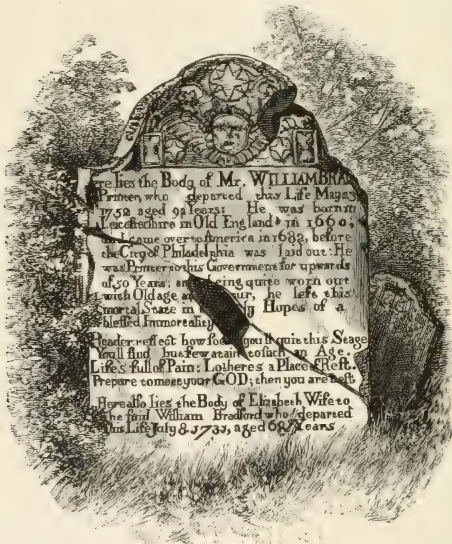 re lies the Body of Mr. WILLIAM BRAD
Printer, who departed this Life May 23
1752 aged 92 Years: He was born in
Leicestershire in Old England in 1660;
and came over to America in 1682, before
the City of Philadelphia was laid out: He
was Printer to this Government for upwards
of 50 Years; and being quite worn out
with Old age and our, he left this
mortal State in ly Hopes of a
blessed Immortality
Reader, reflect how soon you'll quit this Stage
You'll find but few atain to such an Age.
Life's full of Pain: Lo there's a Place of Rest.
Prepare to meet your GOD; then you are blest
Here also lies the Body of Elizabeth Wife to
the said William Bradford who departed
this Life July 8. 1731, aged 68 Years